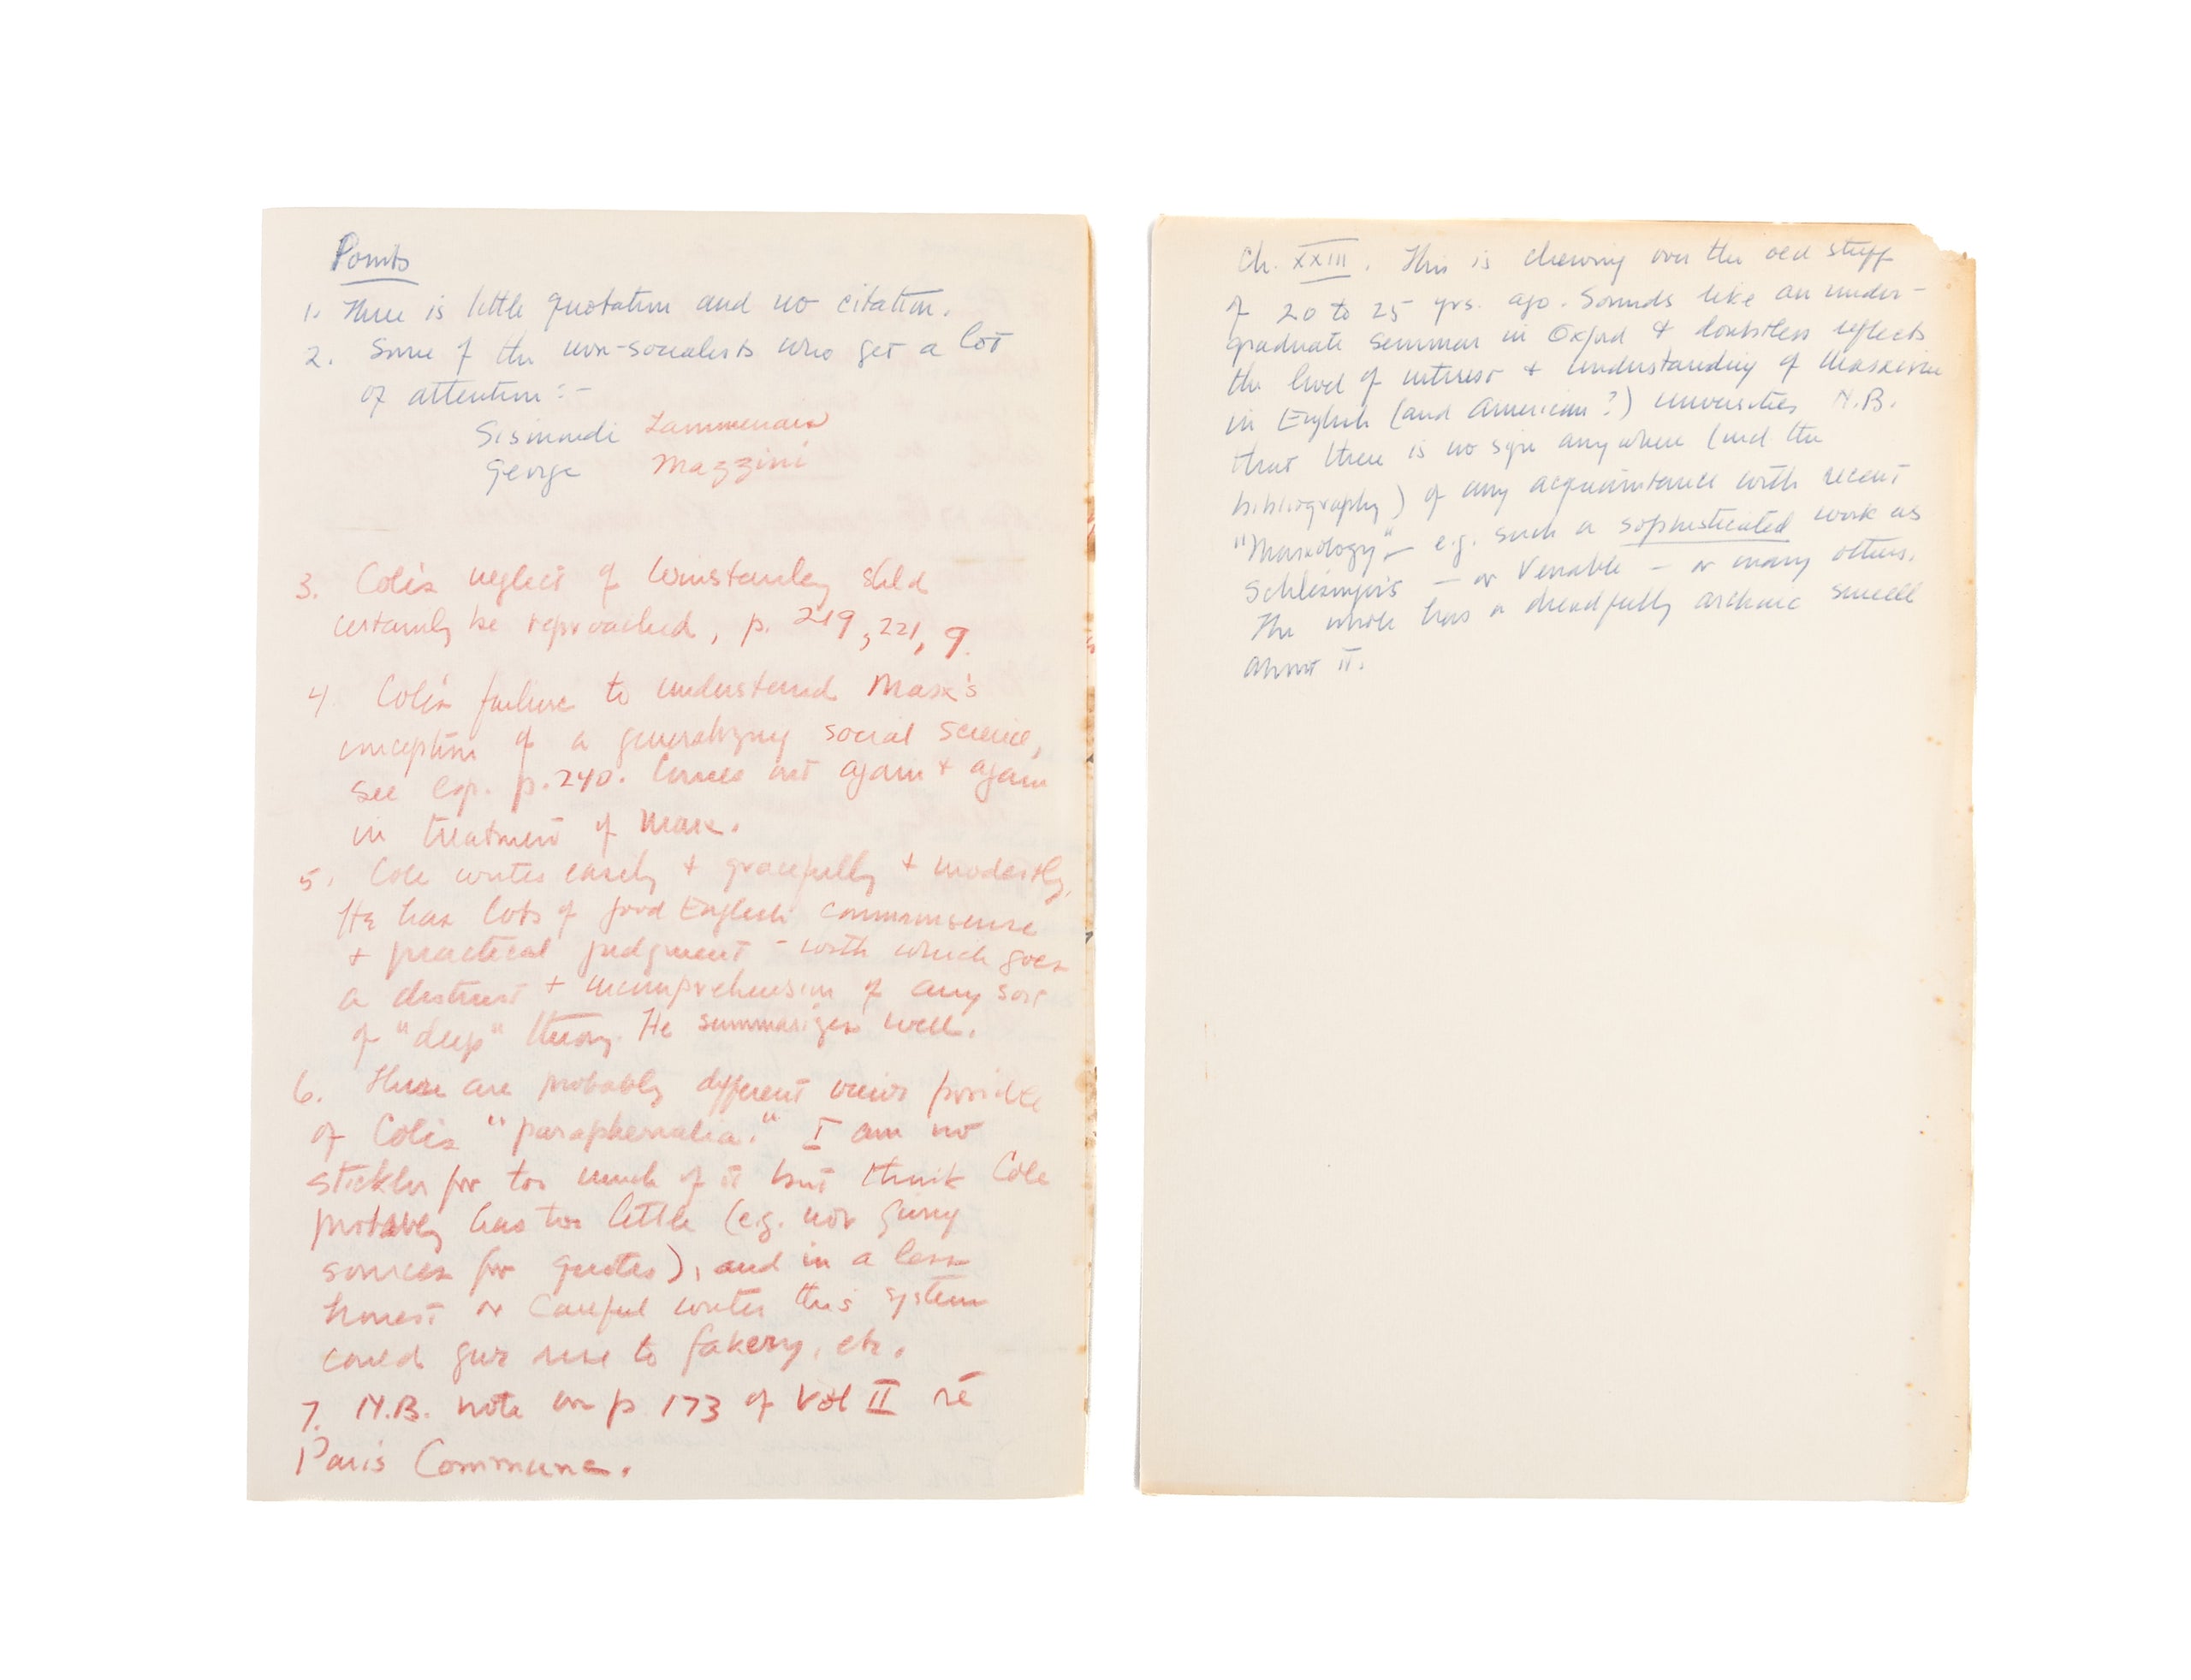 Points
1. There is little quotation and no citation.
2. Some of the non-socialists who get a lot
of attention:-
Sismondi Lammenais
George Mazzini
3. Cole's neglect of Winstanley shld
certainly be reproached, p. 219, 221, 9.
4 Cole's failure to understand Marx's
conception of a generalizing social science,
see esp. p. 240. Comes out again + again
in treatment of Marx.
5. Cole writes easily + gracefully + modestly.
He has lots of good English commonsense
+ practical judgment - with which goes
a distrust + incomprehension of any sort
of "deep" theory. He summarizes well.
6. There are probably different views possible
of Cole's "paraphernalia." I am no
stickler for too much of it but think Cole
probably has too little (e.g. not giving
sources for quotes), and in a less
honest or careful writer this system
could give rise to fakery, etc.
7. N.B. note on p 173 of Vol II re
Paris Commune.
Ch. XXIII. This is chewing over the old stuff
of 20 to 25 yrs. ago. Sounds like an under-
graduate seminar in Oxford & doubtless reflects
the level of interest + understanding of Marxism
in English (and American?) universities N.B.
that there is no sign anywhere (incl the
bibliography) of any acquaintance with recent
"Marxology" - e.g. such a sophisticated work as
Schlesinger's - or Venable - or many others.
The whole has a dreadfully archaic smell
about it.